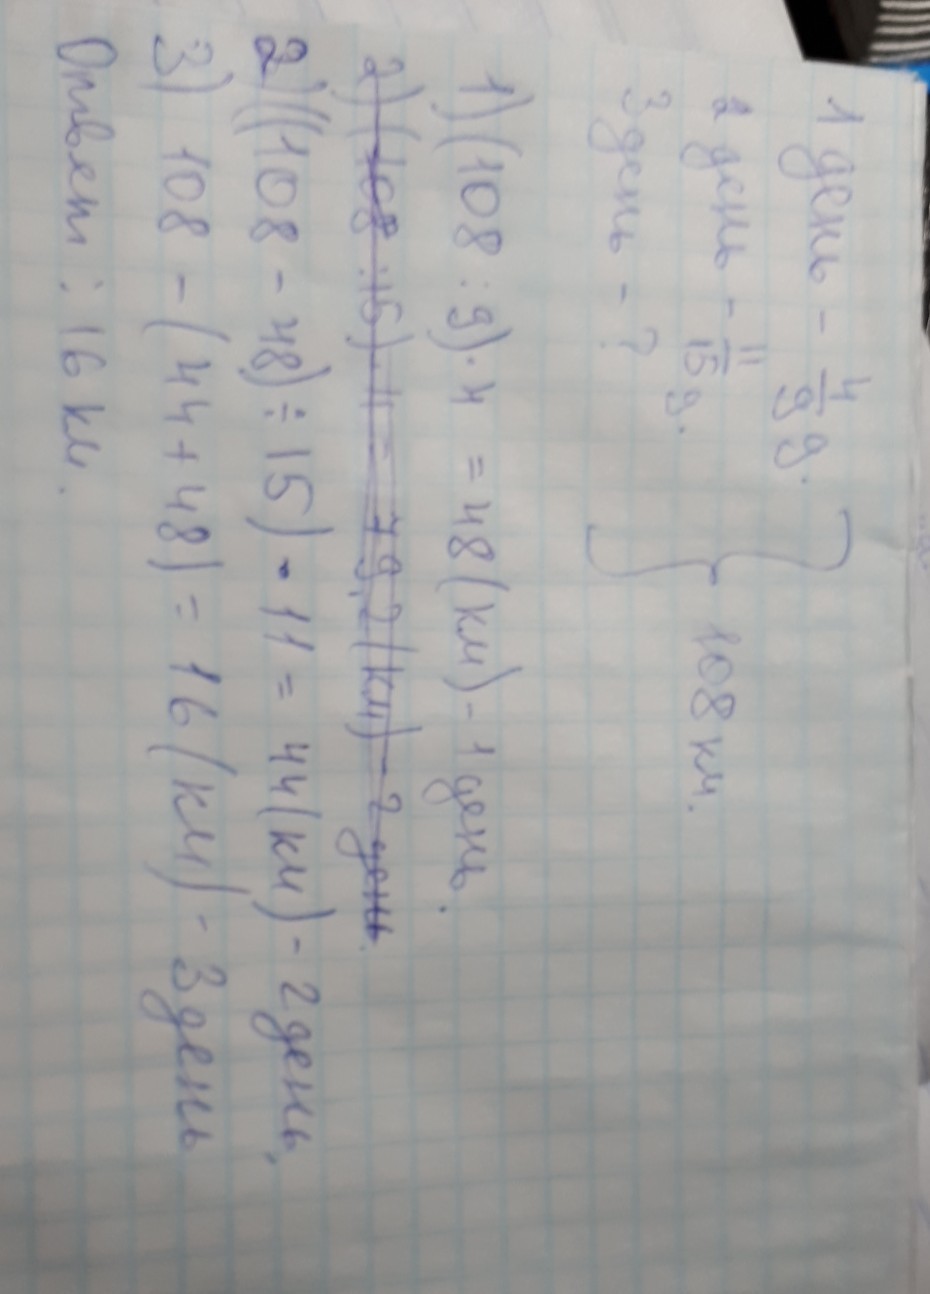 1 день - 4/9 д.
2 день - 11/15 д. } 108 км.
3 день - ?
1) (108 : 9) · 4 = 48 (км) - 1 день.
2) (108 : 15) · 11 = 79,2 (км) - 2 день.
2) ((108 - 48) : 15) · 11 = 44 (км) - 2 день,
3) 108 - (44 + 48) = 16 (км) - 3 день
Ответ : 16 км.